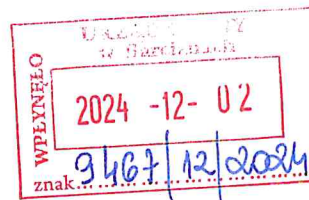 w Garcianach
WPŁYNĘŁO
2024 -12- 02
znak 9467/12/2024